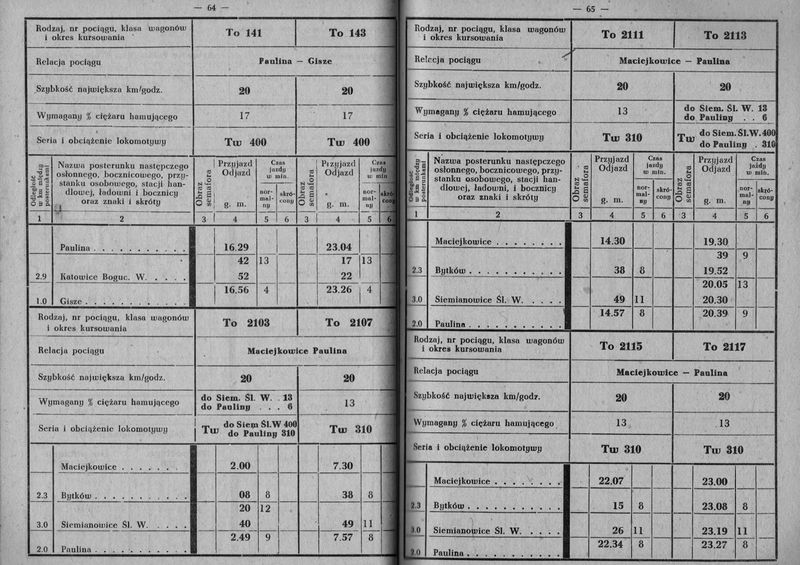 — 64 —
Rodzaj, nr pociągu, klasa wagonów i okres kursowania To 141 To 143
Relacja pociągu Paulina — Gisze
Szybkość największa km/godz. 20 20
Wymagany % ciężaru hamującego 17 17
Seria i obciążenie lokomotywy Tw 400 Tw 400
Odległość w km między posterunkami
Nazwa posterunku następczego
osłonnego, bocznicowego, przy-
stanku osobowego, stacji han-
dlowej, ładowni i bocznicy
oraz znaki i skróty
Obraz semafora
Przyjazd
Odjazd
g. m.
Czas
jazdy
w min.
nor-
mal-
ny
skró-
cony
Obraz semafora
Przyjazd
Odjazd
g. m.
Czas
jazdy
w min
nor-
mal-
ny
skró-
cony
1 2 3 4 5 6 3 4 5 6
Paulina . . . . . . . . . . 16.29 23.04
42 13 17 13
2.9 Katowice Boguc. W. . . . . 52 22
16.56 4 23.26 4
1.0 Gisze . . . . . . . . . . .
Rodzaj, nr pociągu, klasa wagonów i okres kursowania To 2103 To 2107
Relacja pociągu Maciejkowice Paulina
Szybkość największa km/godz. 20 20
Wymagany % ciężaru hamującego do Siem. Śl. W. . 13 13
do Pauliny . . . 6
Seria i obciążenie lokomotywy Tw do Siem Śl.W 400 Tw 310
do Pauliny 310
Maciejkowice . . . . . . . 2.00 7.30
2.3 Bytków . . . . . . . . . . 08 8 38 8
20 12
3.0 Siemianowice Śl. W. . . . . 40 49 11
2.49 9 7.57 8
2.0 Paulina . . . . . . . . . .
— 65 —
Rodzaj, nr pociągu, klasa wagonów i okres kursowania To 2111 To 2113
Relacja pociągu Maciejkowice — Paulina
Szybkość największa km/godz. 20 20
Wymagany % ciężaru hamującego 13 do Siem. Śl. W. 13
do Pauliny . . 6
Seria i obciążenie lokomotywy Tw 310 Tw do Siem.Śl.W.400
do Pauliny . 310
Odległość w km między posterunkami
Nazwa posterunku następczego
osłonnego, bocznicowego, przy-
stanku osobowego, stacji han-
dlowej, ładowni, i bocznicy
oraz znaki i skróty
Obraz semafora
Przyjazd
Odjazd
g. m.
Czas
jazdy
w min.
nor-
mal-
ny
skró-
cony
Obraz semafora
Przyjazd
Odjazd
g. m.
Czas
jazdy
w min.
nor-
mal-
ny
skró-
cony
1 2 3 4 5 6 3 4 5 6
Maciejkowice . . . . . . . 14.30 19.30
39 9
2.3 Bytków . . . . . . . . . . 38 8 19.52
20.05 13
3.0 Siemianowice Śl. W. . . . . 49 11 20.30
14.57 8 20.39 9
2.0 Paulina . . . . . . . . . .
Rodzaj, nr pociągu, klasa wagonów i okres kursowania To 2115 To 2117
Relacja pociągu Maciejkowice — Paulina
Szybkość największa km/godz. 20 20
Wymagany % ciężaru hamującego 13 13
Seria i obciążenie lokomotywy Tw 310 Tw 310
Maciejkowice . . . . . . . 22.07 23.00
2.3 Bytków . . . . . . . . . . 15 8 23.08 8
3.0 Siemianowice Śl. W. . . . . 26 11 23.19 11
22.34 8 23.27 8
2.0 Paulina . . . . . . . . . .